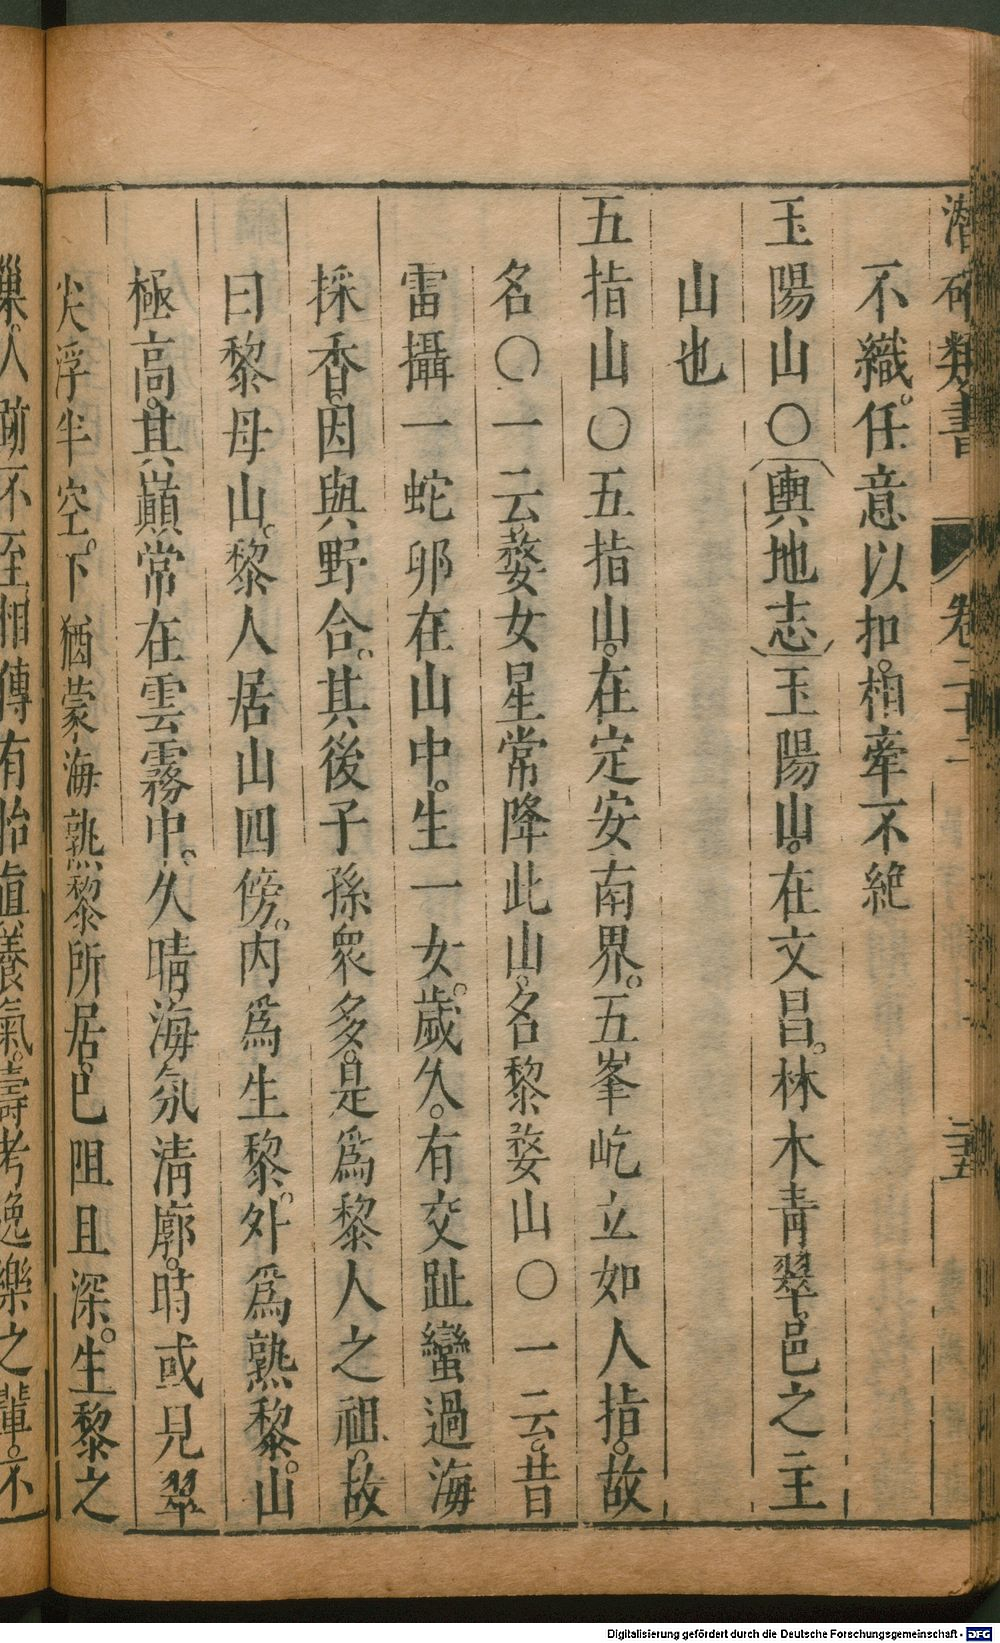 潛確類書 卷二十二 二十五
不織。任意以扣。相牽不絶
玉陽山〇輿地志玉陽山。在文昌。林木青翠。邑之主
山也
五指山〇五指山。在定安南界。五峯屹立如人指。故
名〇一云。婺女星常降此山。名黎婺山〇一云。昔
雷攝一蛇卵在山中。生一女。歲久。有交趾蠻過海
採香。因與野合。其後子孫衆多。是爲黎人之祖。故
曰黎母山。黎人居山四傍。内爲生黎。外爲熟黎。山
極高。其巔常在雲霧中。久晴。海氛清廓。時或見翠
尖浮半空。下猶蒙海。熟黎所居。已阻且深。生黎之
巢。人跡不至。相傳有怡眞養氣。壽考逸樂之輩。不
Digitalisierung gefördert durch die Deutsche Forschungsgemeinschaft - DFG